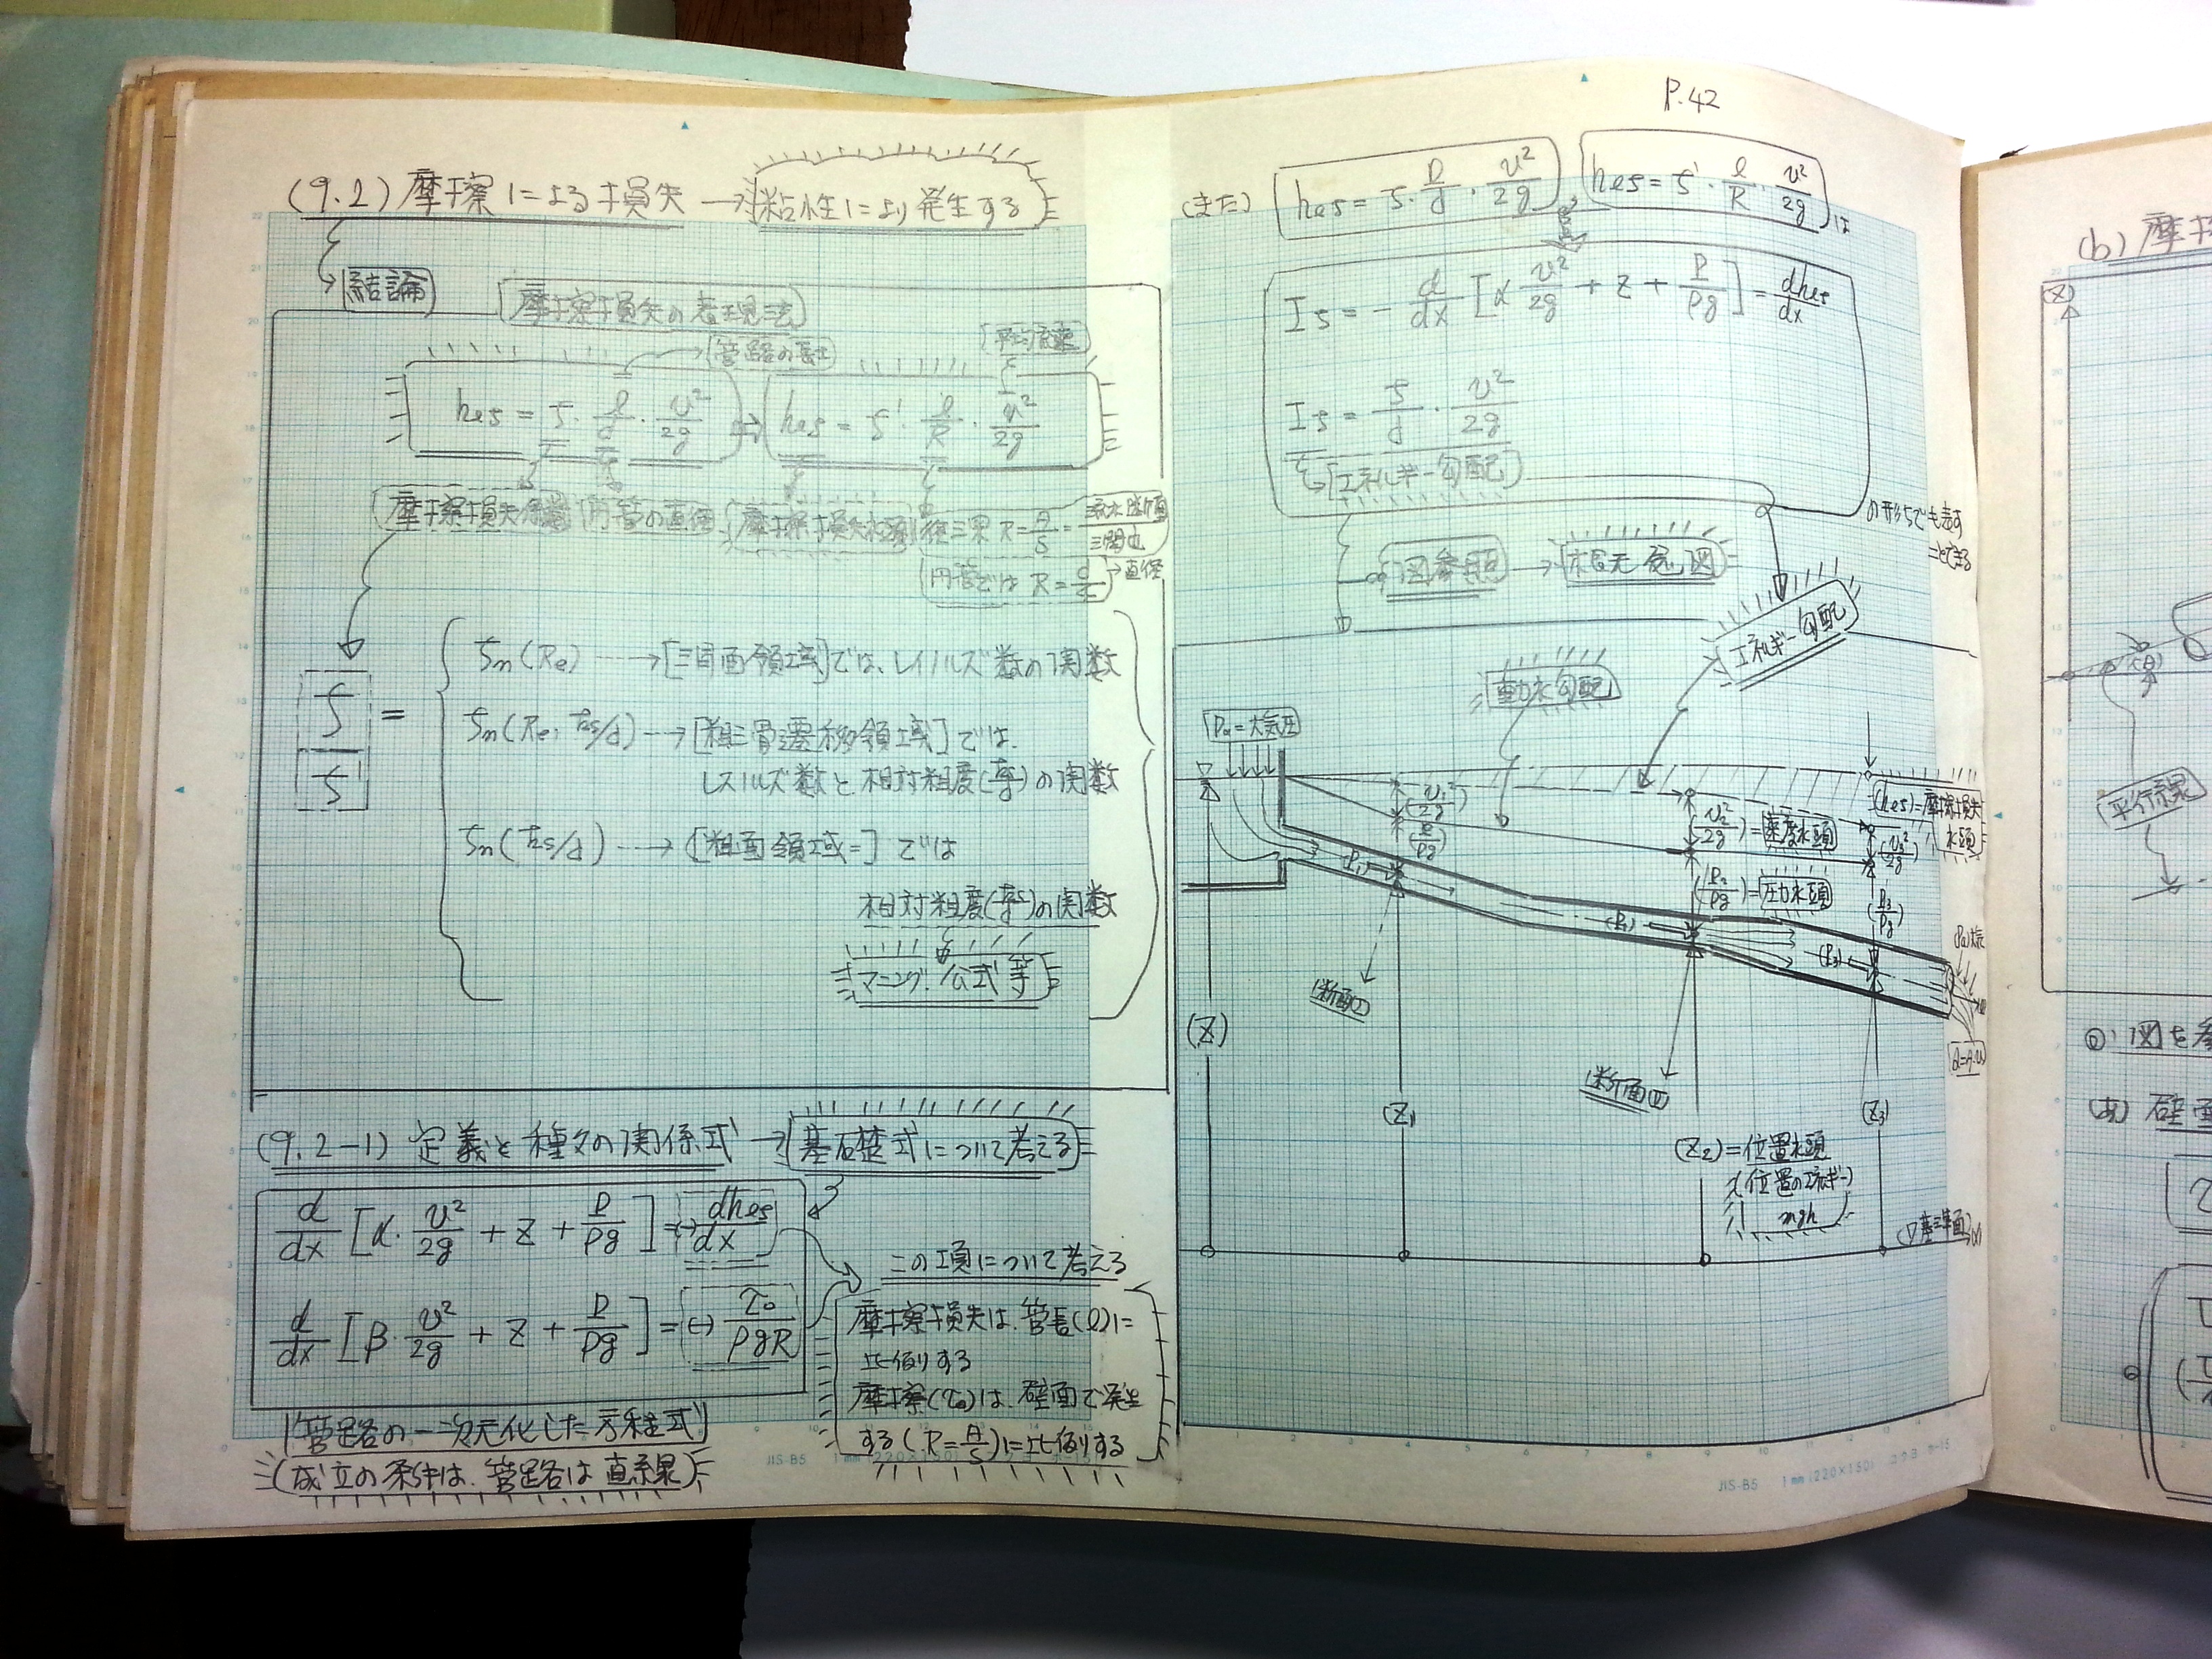 P.42
(9.2) 摩擦による損失 → 粘性により発生する
結論
摩擦損失の表現法
管路の長さ
平均流速
hes = ζ · l/d · v²/2g → hes = ζ' · l/R · v²/2g
摩擦損失係数 円管の直径 摩擦損失係数 径深 R = A/S = 流水断面/潤辺
円管では R = d/4 → 直径
ζ
ζ'
=
ζn (Re) → [滑面領域]では、レイノルズ数の関数
ζn (Re, ks/d) → [粗滑遷移領域]では、
レイノルズ数と相対粗度(ks/d)の関数
ζn (ks/d) → [粗面領域]では
相対粗度(ks/d)の関数
マニング公式等
(9.2-1) 定義と種々の関係式 → 基礎式について考える
d/dx [α · v²/2g + z + P/ρg] = (-) dhes/dx
この項について考える
d/dx [β · v²/2g + z + P/ρg] = (-) τ0/ρgR
摩擦損失は、管長(l)に
比例する
摩擦(τ0)は、壁面で発生
する (R = A/S)に比例する
管路の一次元化した方程式
(成立の条件は、管路は直線)
JIS-B5 1mm(220×150)
(また) hes = ζ · l/d · v²/2g hes = ζ' · l/R · v²/2g は
Iς = - d/dx [α v²/2g + z + P/ρg] = dhes/dx
Iς = ζ/d · v²/2g
エネルギー勾配
の形でも表す
ことできる
図参照 → 概念図
エネルギー勾配
動水勾配
Pa=大気圧
(v1²/2g)
(P1/ρg)
(v2²/2g)=速度水頭
(hes)=摩擦損失
水頭
(v3²/2g)
(P2/ρg)=圧力水頭
(P3/ρg)
(P1)
(P2)
(P3)
断面(I)
断面(II)
(Z)
(Z1)
(Z2)=位置水頭
(位置のエネルギー)
mgh
(Z3)
基準面
JIS-B5 1mm(220×150) コクヨ ホ-15
(b) 摩擦
(Z)
平行線
図を参
(あ) 壁面